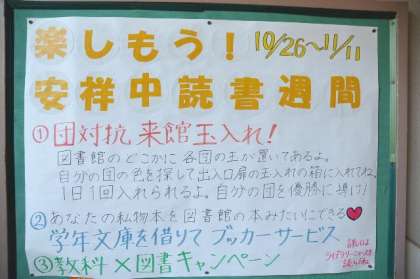 楽しもう! 10/26~11/11
安祥中読書週間
①団対抗 来館玉入れ!
図書館のどこかに各団の玉が置いてあるよ。
自分の団の色を探して出入口扉の玉入れの箱に入れてね。
1日1回入れられるよ。自分の団を優勝に導け!
②あなたの私物本を図書館の本みたいにできる♥
学年文庫を借りて ブッカーサービス
③教科×図書キャンペーン